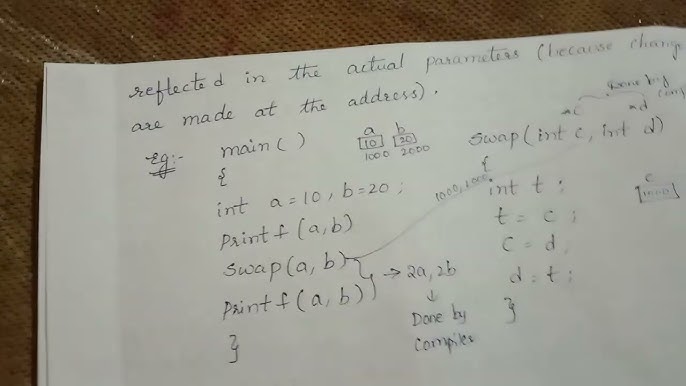 reflected in the actual parameters (because change
are made at the address).
Eg:- main( )
{
a b
10 20
1000 2000
int a=10, b=20;
printf(a,b)
swap(a,b)
printf(a,b)
}
→ 2a, 2b
↓
Done by
compiler
Done by
*c *d
swap(int c, int d)
{
int t;
t = c;
c = d,
d = t;
}
c
1000